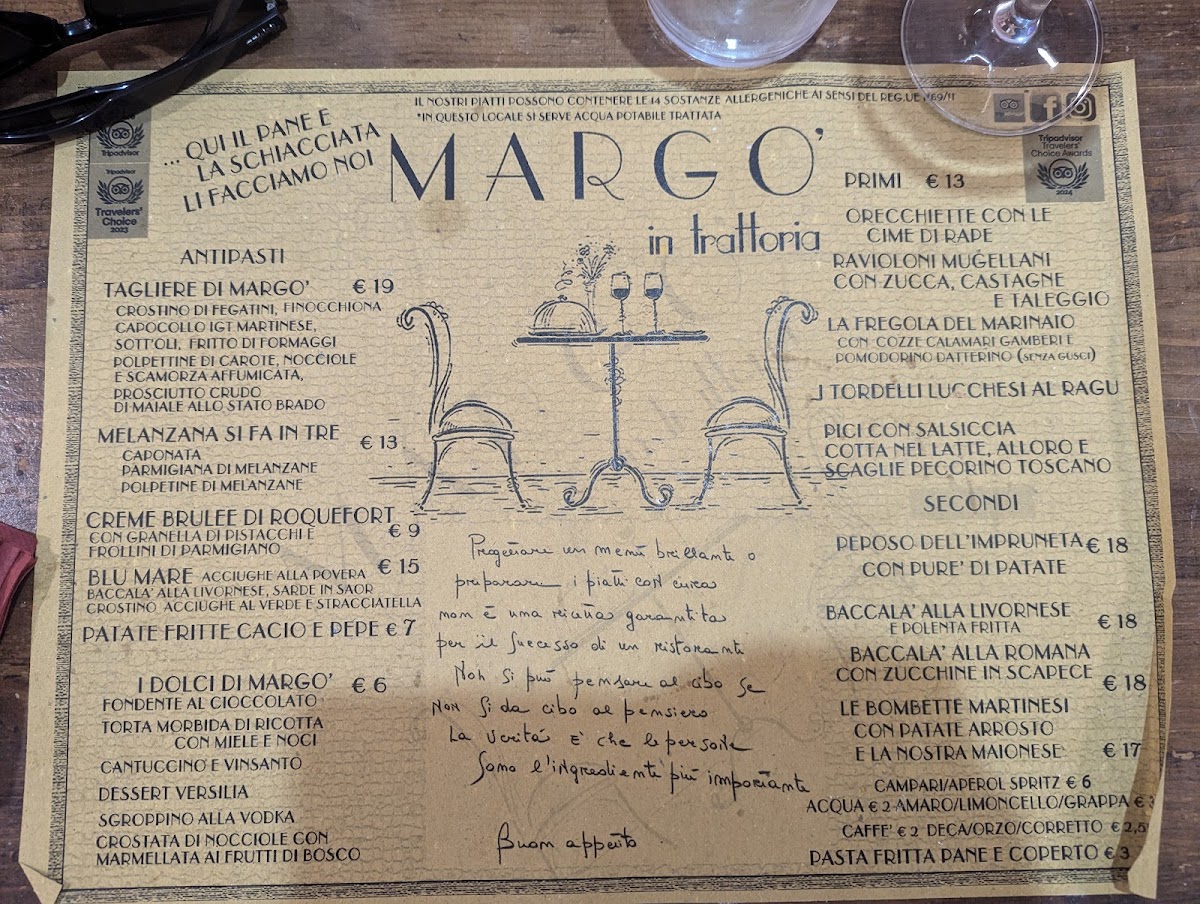 IL NOSTRI PIATTI POSSONO CONTENERE LE 14 SOSTANZE ALLERGENICHE AI SENSI DEL REG.UE 1169/11
*IN QUESTO LOCALE SI SERVE ACQUA POTABILE TRATTATA
Tripadvisor
Tripadvisor
Travelers'
Choice
2023
... QUI IL PANE E
LA SCHIACCIATA
LI FACCIAMO NOI
MARGO'
in trattoria
Tripadvisor
Travelers'
Choice Awards
2024
ANTIPASTI
TAGLIERE DI MARGO' € 19
CROSTINO DI FEGATINI, FINOCCHIONA
CAPOCOLLO IGT MARTINESE,
SOTT'OLI, FRITTO DI FORMAGGI
POLPETTINE DI CAROTE, NOCCIOLE
E SCAMORZA AFFUMICATA,
PROSCIUTTO CRUDO
DI MAIALE ALLO STATO BRADO
MELANZANA SI FA IN TRE € 13
CAPONATA
PARMIGIANA DI MELANZANE
POLPETINE DI MELANZANE
CREME BRULEE DI ROQUEFORT
CON GRANELLA DI PISTACCHI E € 9
FROLLINI DI PARMIGIANO
BLU MARE ACCIUGHE ALLA POVERA € 15
BACCALA' ALLA LIVORNESE, SARDE IN SAOR
CROSTINO ACCIUGHE AL VERDE E STRACCIATELLA
PATATE FRITTE CACIO E PEPE € 7
I DOLCI DI MARGO' € 6
FONDENTE AL CIOCCOLATO
TORTA MORBIDA DI RICOTTA
CON MIELE E NOCI
CANTUCCINO E VINSANTO
DESSERT VERSILIA
SGROPPINO ALLA VODKA
CROSTATA DI NOCCIOLE CON
MARMELLATA AI FRUTTI DI BOSCO
Progettare un menù brillante o
preparare i piatti con cura
non è una ricetta garantita
per il successo di un ristorante
Non si può pensare al cibo se
Non si da cibo al pensiero
La verità è che le persone
sono l'ingrediente più importante
Buon appetito
PRIMI € 13
ORECCHIETTE CON LE
CIME DI RAPE
RAVIOLONI MUGELLANI
CON ZUCCA, CASTAGNE
E TALEGGIO
LA FREGOLA DEL MARINAIO
CON COZZE CALAMARI GAMBERI E
POMODORINO DATTERINO (SENZA GUSCI)
I TORDELLI LUCCHESI AL RAGU
PICI CON SALSICCIA
COTTA NEL LATTE, ALLORO E
SCAGLIE PECORINO TOSCANO
SECONDI
PEPOSO DELL'IMPRUNETA € 18
CON PURE' DI PATATE
BACCALA' ALLA LIVORNESE
E POLENTA FRITTA € 18
BACCALA' ALLA ROMANA
CON ZUCCHINE IN SCAPECE
€ 18
LE BOMBETTE MARTINESI
CON PATATE ARROSTO
E LA NOSTRA MAIONESE € 17
CAMPARI/APEROL SPRITZ € 6
ACQUA € 2 AMARO/LIMONCELLO/GRAPPA € 3
CAFFE' € 2 DECA/ORZO/CORRETTO € 2,5
PASTA FRITTA PANE E COPERTO € 3